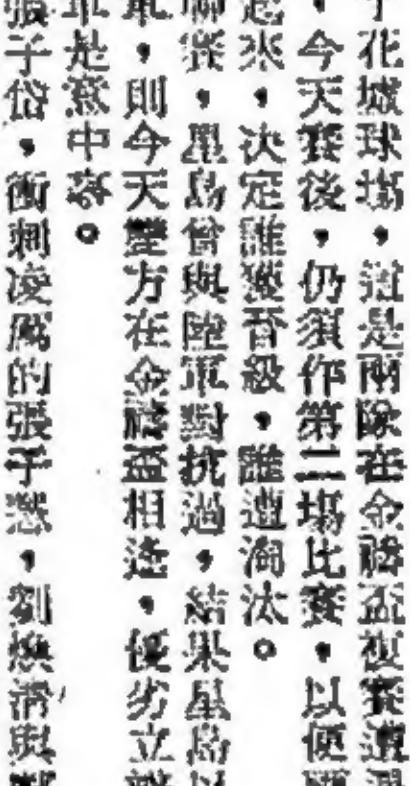 花墟球場，這是兩隊在金禧盃復賽遭
，今天賽後，仍須作第二場比賽，以便
起來，決定誰獲晉級，誰遭淘汰。
聯賽，星島曾與陸軍對抗過，結果星島以
軍，則今天雙方在金禧盃相逢，優劣立
軍是意中事。
張子岱，衝刺凌厲的張子慧，劉煥清與